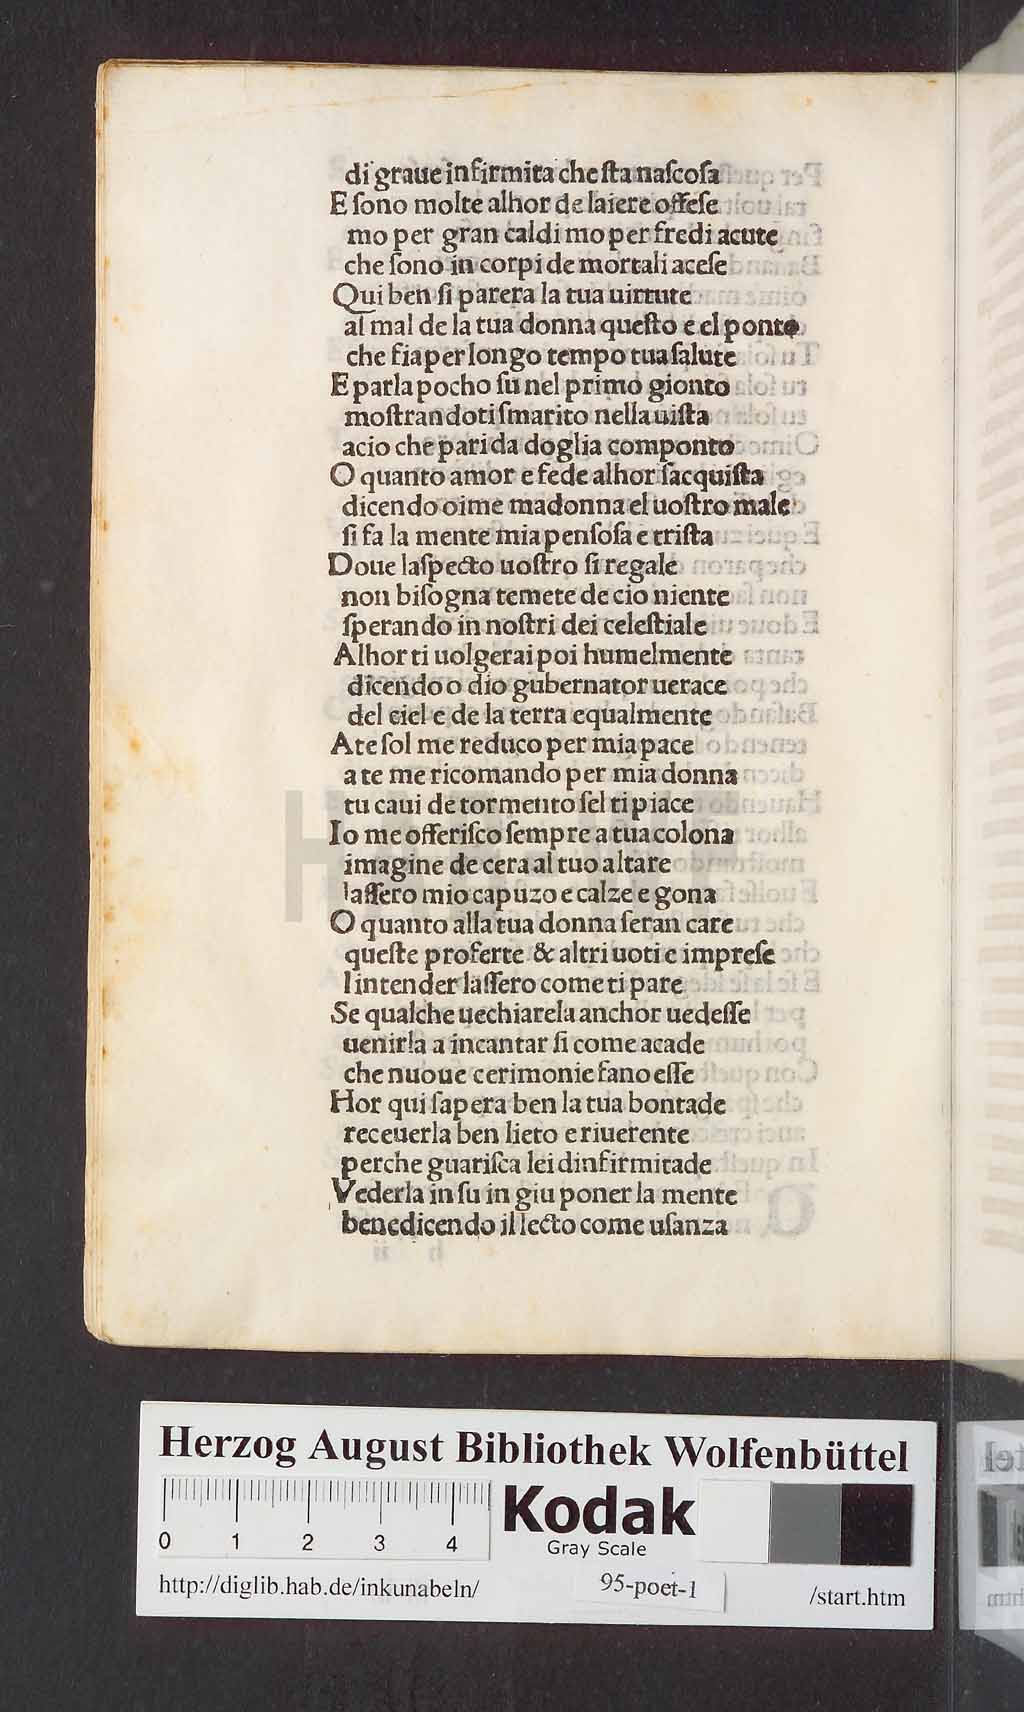 di graue infirmita che ſta naſcoſa
E ſono molte alhor de laiere offeſe
mo per gran caldi mo per fredi acute
che ſono in corpi de mortali aceſe
Qui ben ſi parera la tua uirtute
al mal de la tua donna queſto e el ponto
che fia per longo tempo tua ſalute
E parla pocho ſu nel primo gionto
moſtrandoti ſmarito nella uiſta
acio che pari da doglia componto
O quanto amor e fede alhor ſacquiſta
dicendo oime madonna el uoſtro male
ſi fa la mente mia penſoſa e triſta
Doue laſpecto uoſtro ſi regale
non biſogna temete de cio niente
ſperando in noſtri dei celeſtiale
Alhor ti uolgerai poi humelmente
dicendo o dio gubernator uerace
del ciel e de la terra equalmente
A te ſol me reduco per mia pace
a te me ricomando per mia donna
tu caui de tormento ſel ti piace
Io me offeriſco ſempre a tua colona
imagine de cera al tuo altare
laſſero mio capuzo e calze e gona
O quanto alla tua donna ſeran care
queſte proferte & altri uoti e impreſe
lintender laſſero come ti pare
Se qualche uechiarela anchor uedeſſe
uenirla a incantar ſi come acade
che nuoue cerimonie fano eſſe
Hor qui ſapera ben la tua bontade
receuerla ben lieto e riuerente
perche guariſca lei dinfirmitade
Vederla in ſu in giu poner la mente
benedicendo il lecto come uſanza
HAB - WF
Herzog August Bibliothek Wolfenbüttel
0 1 2 3 4
Kodak
Gray Scale
http://diglib.hab.de/inkunabeln/ 95-poet-1 /start.htm